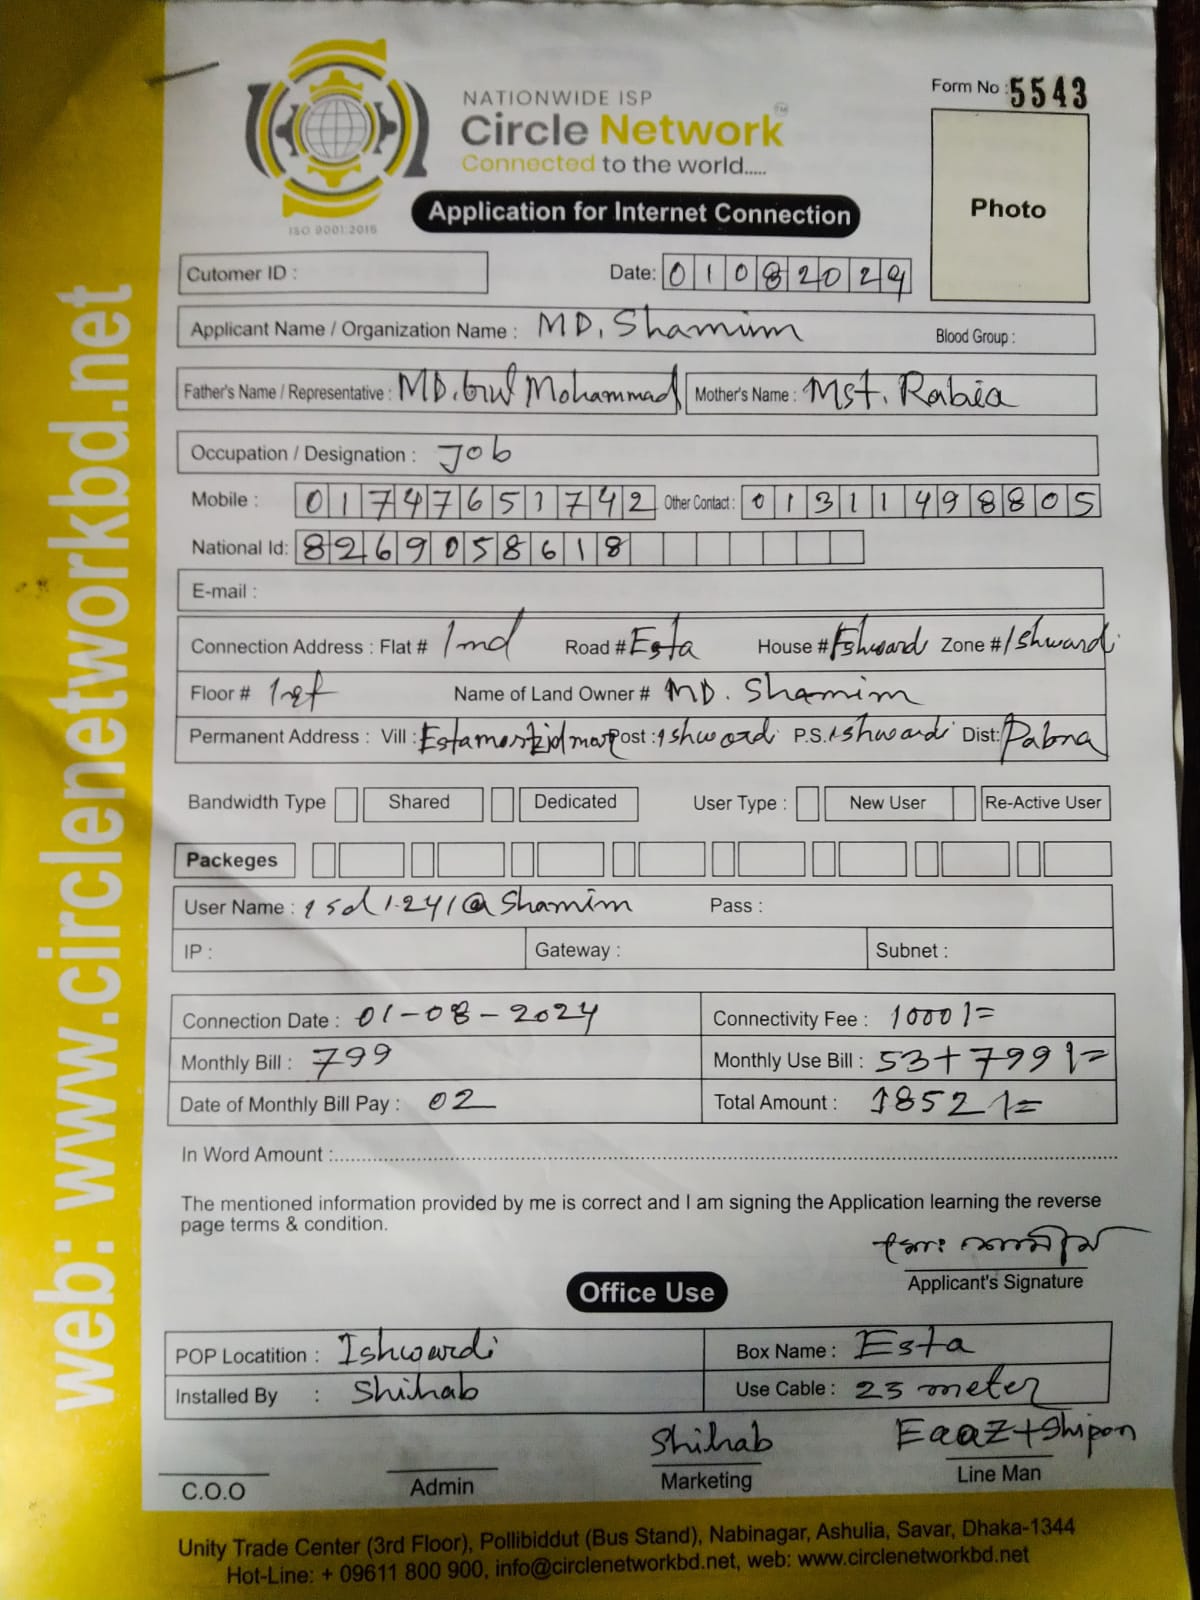 Form No : 5543
NATIONWIDE ISP
Circle Network TM
Connected to the world.....
ISO 9001:2015
Photo
Application for Internet Connection
Cutomer ID :
Date: 01082024
Applicant Name / Organization Name : MD. Shamim Blood Group :
Father's Name / Representative : MD. Gul Mohammad Mother's Name : Mst. Rabia
Occupation / Designation : Job
Mobile : 01747651742 Other Contact : 01311498805
National Id: 8269058618
E-mail :
Connection Address : Flat # Road # Esta House # Zone # Ishwardi
Floor # Name of Land Owner # MD. Shamim
Permanent Address : Vill : Post : Ishwardi P.S. Ishwardi Dist: Pabna
Bandwidth Type Shared Dedicated User Type : New User Re-Active User
Packeges
User Name : Pass :
IP : Gateway : Subnet :
Connection Date : 01-08-2024 Connectivity Fee : 1000/=
Monthly Bill : 799 Monthly Use Bill : 53+799/=
Date of Monthly Bill Pay : 02 Total Amount : 1852/=
In Word Amount :
The mentioned information provided by me is correct and I am signing the Application learning the reverse
page terms & condition.
মোঃ শামীম
Applicant's Signature
Office Use
POP Locatition : Ishwardi Box Name : Esta
Installed By : Shihab Use Cable : 23 meter
Shihab Eaaz+Shipon
C.O.O Admin Marketing Line Man
Unity Trade Center (3rd Floor), Pollibiddut (Bus Stand), Nabinagar, Ashulia, Savar, Dhaka-1344
Hot-Line: + 09611 800 900, info@circlenetworkbd.net, web: www.circlenetworkbd.net
web: www.circlenetworkbd.net